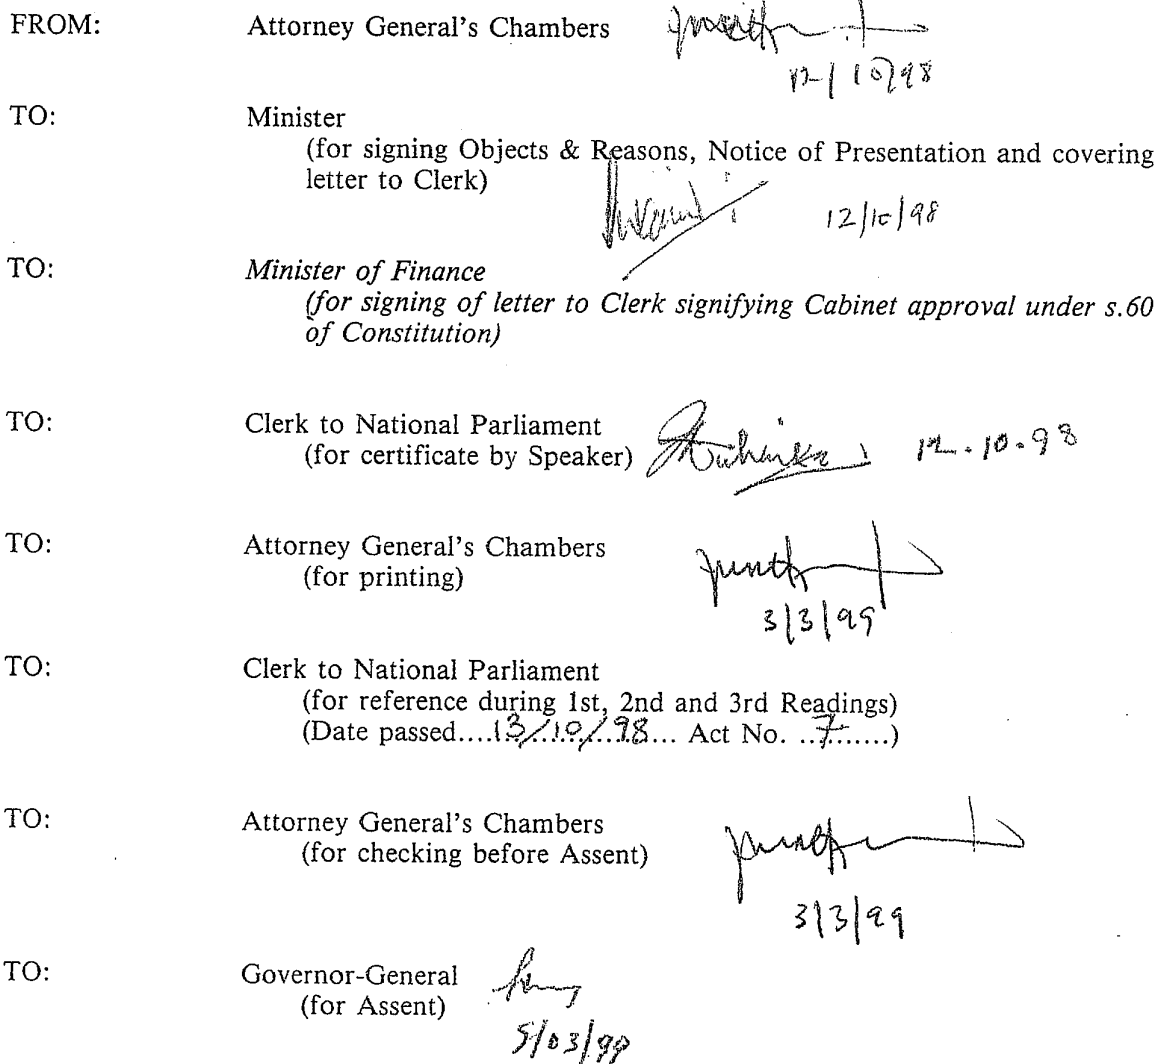 FROM: Attorney General's Chambers
12/10/98
TO: Minister
(for signing Objects & Reasons, Notice of Presentation and covering
letter to Clerk)
12/10/98
TO: Minister of Finance
(for signing of letter to Clerk signifying Cabinet approval under s.60
of Constitution)
TO: Clerk to National Parliament
(for certificate by Speaker) 12.10.98
TO: Attorney General's Chambers
(for printing)
3/3/99
TO: Clerk to National Parliament
(for reference during 1st, 2nd and 3rd Readings)
(Date passed....13/10/98... Act No. ..7.......)
TO: Attorney General's Chambers
(for checking before Assent)
3/3/99
TO: Governor-General
(for Assent)
5/03/99